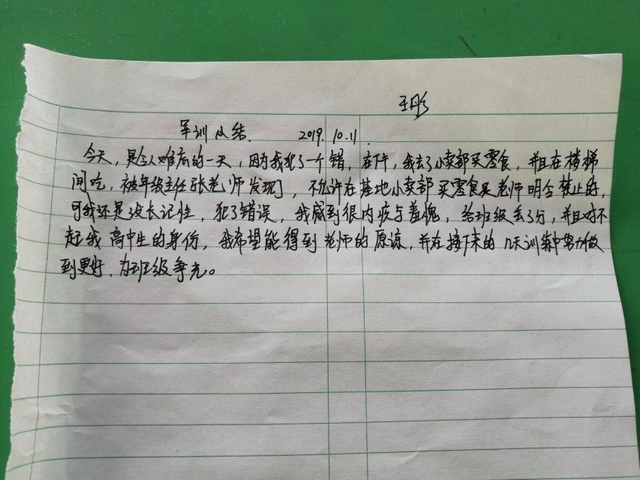 王彤
军训总结 2019.10.11.
今天,是令人难忘的一天,因为我犯了一个错,下午,我去了小卖部买零食,并且在楼梯
间吃,被年级主任张老师发现了,不允许在基地小卖部买零食是老师明令禁止的,
可我还是没长记性,犯了错误,我感到很内疚与羞愧,给班级丢了分,并且对不
起我高中生的身份,我希望能得到老师的原谅,并在接下来的几天训练中努力做
到更好,为班级争光。